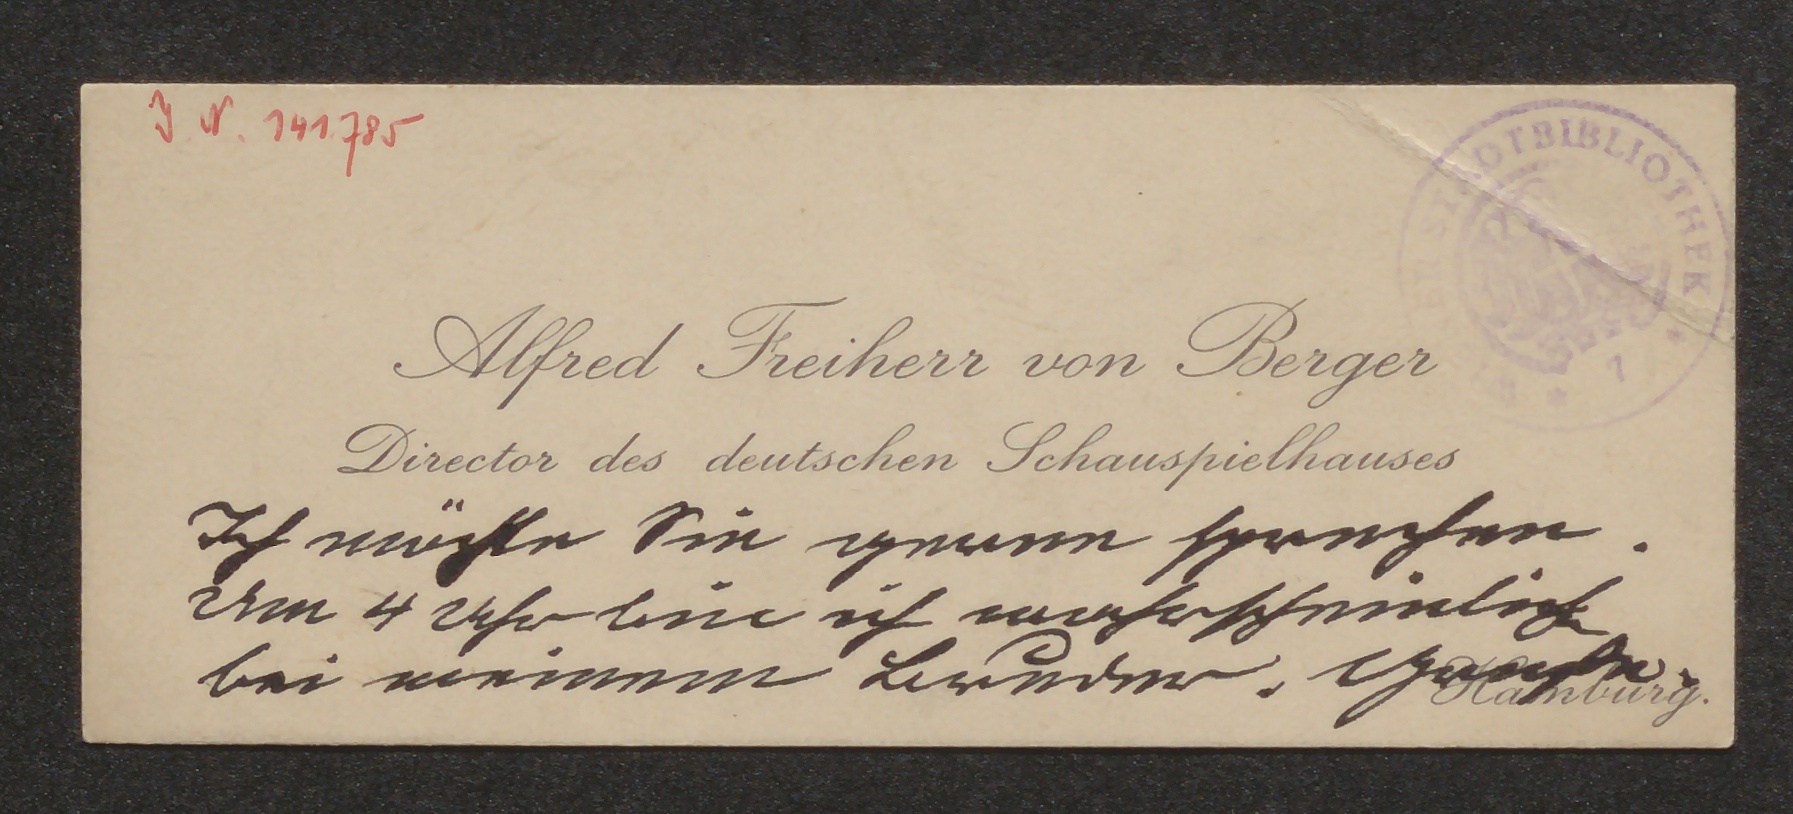 J. N. 141.785
STADTBIBLIOTHEK
* 1 *
Alfred Freiherr von Berger
Director des deutschen Schauspielhauses
Ich möchte Sie gerne sprechen.
Um 4 Uhr bin ich wahrscheinlich
bei meinem Bruder.
Hamburg.